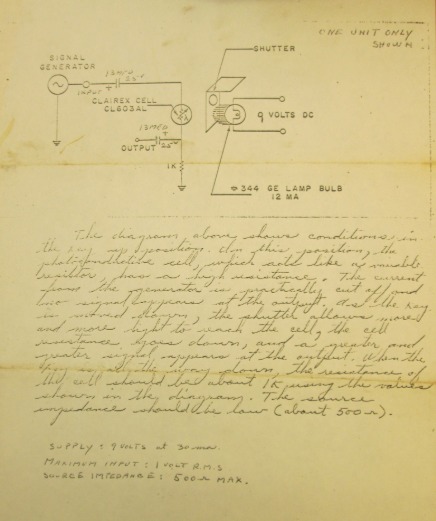 ONE UNIT ONLY
SHOWN
SHUTTER
SIGNAL
GENERATOR
INPUT
+
25V
CLAIREX CELL
CL603AL
9 VOLTS DC
OUTPUT
+
25V
1K
344 GE LAMP BULB
12 MA
The diagram above shows conditions in
the key up position. In this position, the
photoconductive cell, which acts like a variable
resistor, has a high resistance. The current
from the generator is practically cut off and
low signal appears at the output. As the key
is moved down, the shutter allows more
and more light to reach the cell, the cell
resistance goes down, and a greater and
greater signal appears at the output. When the
key is all the way down, the resistance of
the cell should be about 1K using the values
shown in the diagram. The source
impedance should be low (about 500 Ω).
SUPPLY: 9 VOLTS at 30 ma.
MAXIMUM INPUT: 1 VOLT R.M.S
SOURCE IMPEDANCE: 500 Ω MAX.